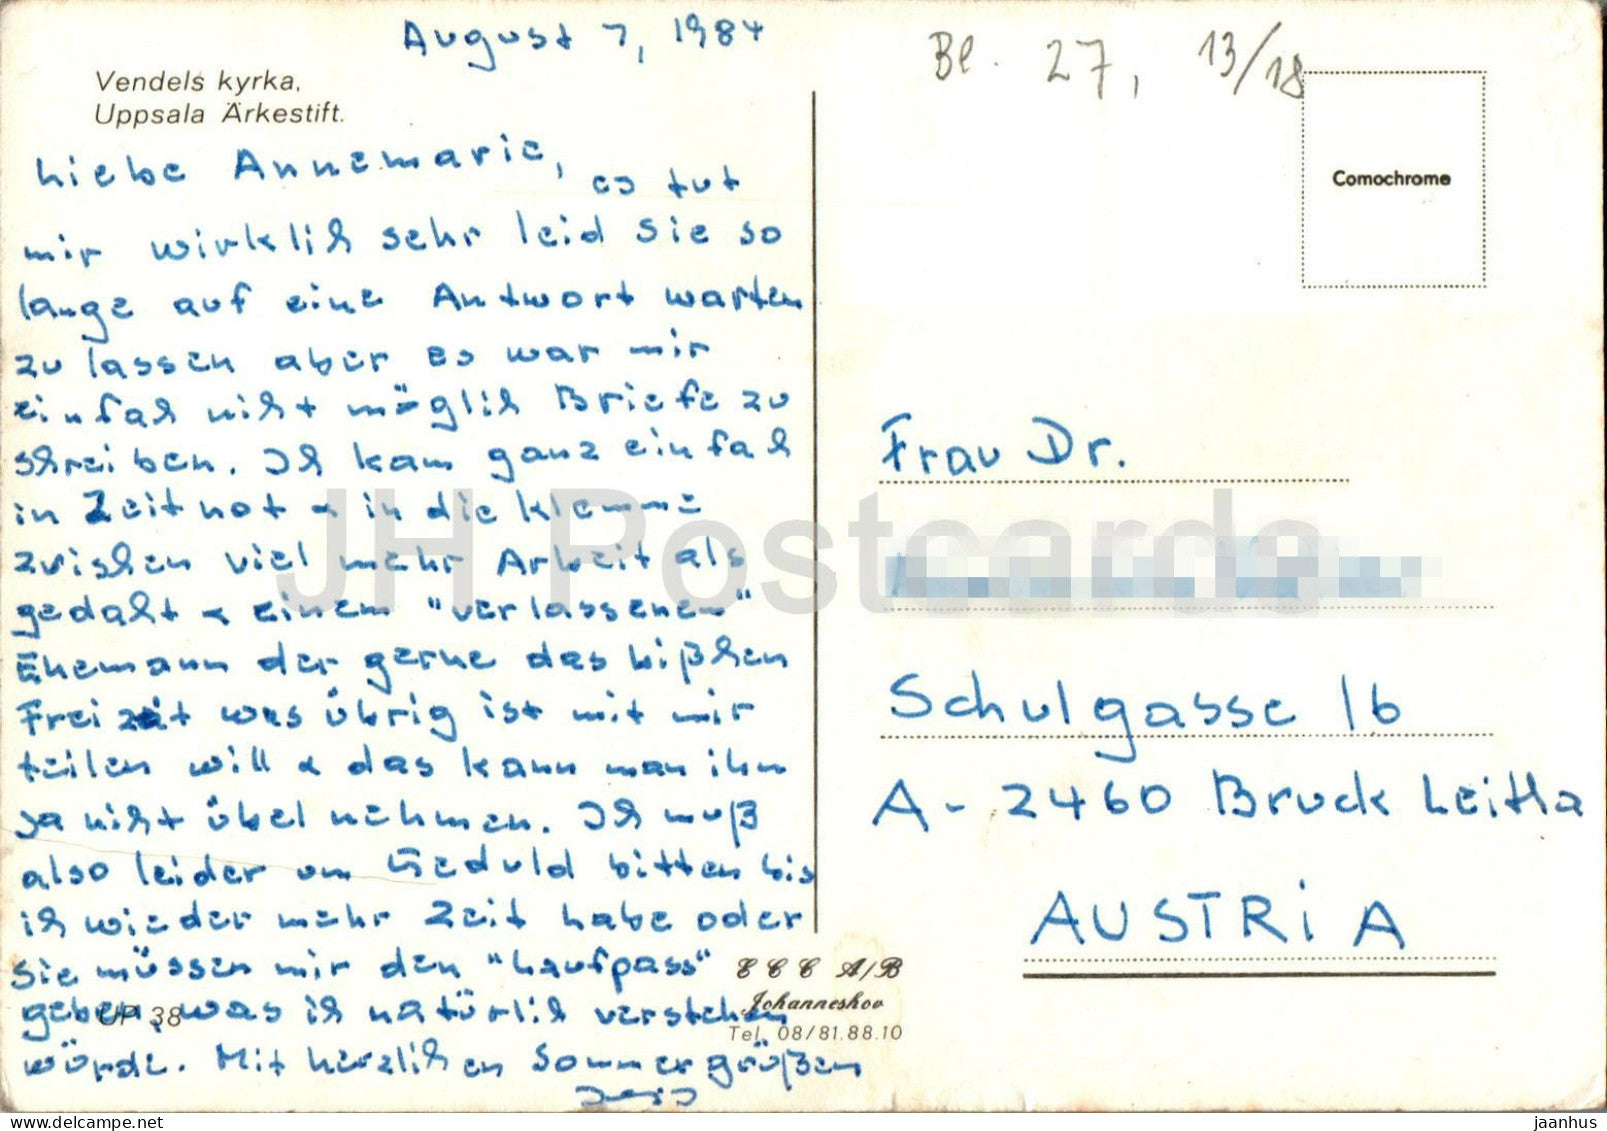 August 7, 1984
Bl. 27, 13/18
Vendels kyrka,
Uppsala Ärkestift.
Comochrome
Liebe Annemarie, es tut
mir wirklich sehr leid Sie so
lange auf eine Antwort warten
zu lassen aber es war mir
einfach nicht möglich Briefe zu
schreiben. Ich kam ganz einfach
in Zeitnot & in die Klemme
zwischen viel mehr Arbeit als
gedacht & einem "verlassenen"
Ehemann der gerne das bißchen
Freizeit was übrig ist mit mir
teilen will & das kann man ihm
ja nicht übel nehmen. Ich muß
also leider um Geduld bitten bis
ich wieder mehr Zeit habe oder
Sie müssen mir den "Laufpass"
geben, was ich natürlich verstehen
würde. Mit herzlichen Sommergrüßen
UP 38
Frau Dr.
Schulgasse 16
A-2460 Bruck Leitha
AUSTRIA
C C C A/B
Johanneshov
Tel. 08/81.88.10
JH Postcards
jaanhus